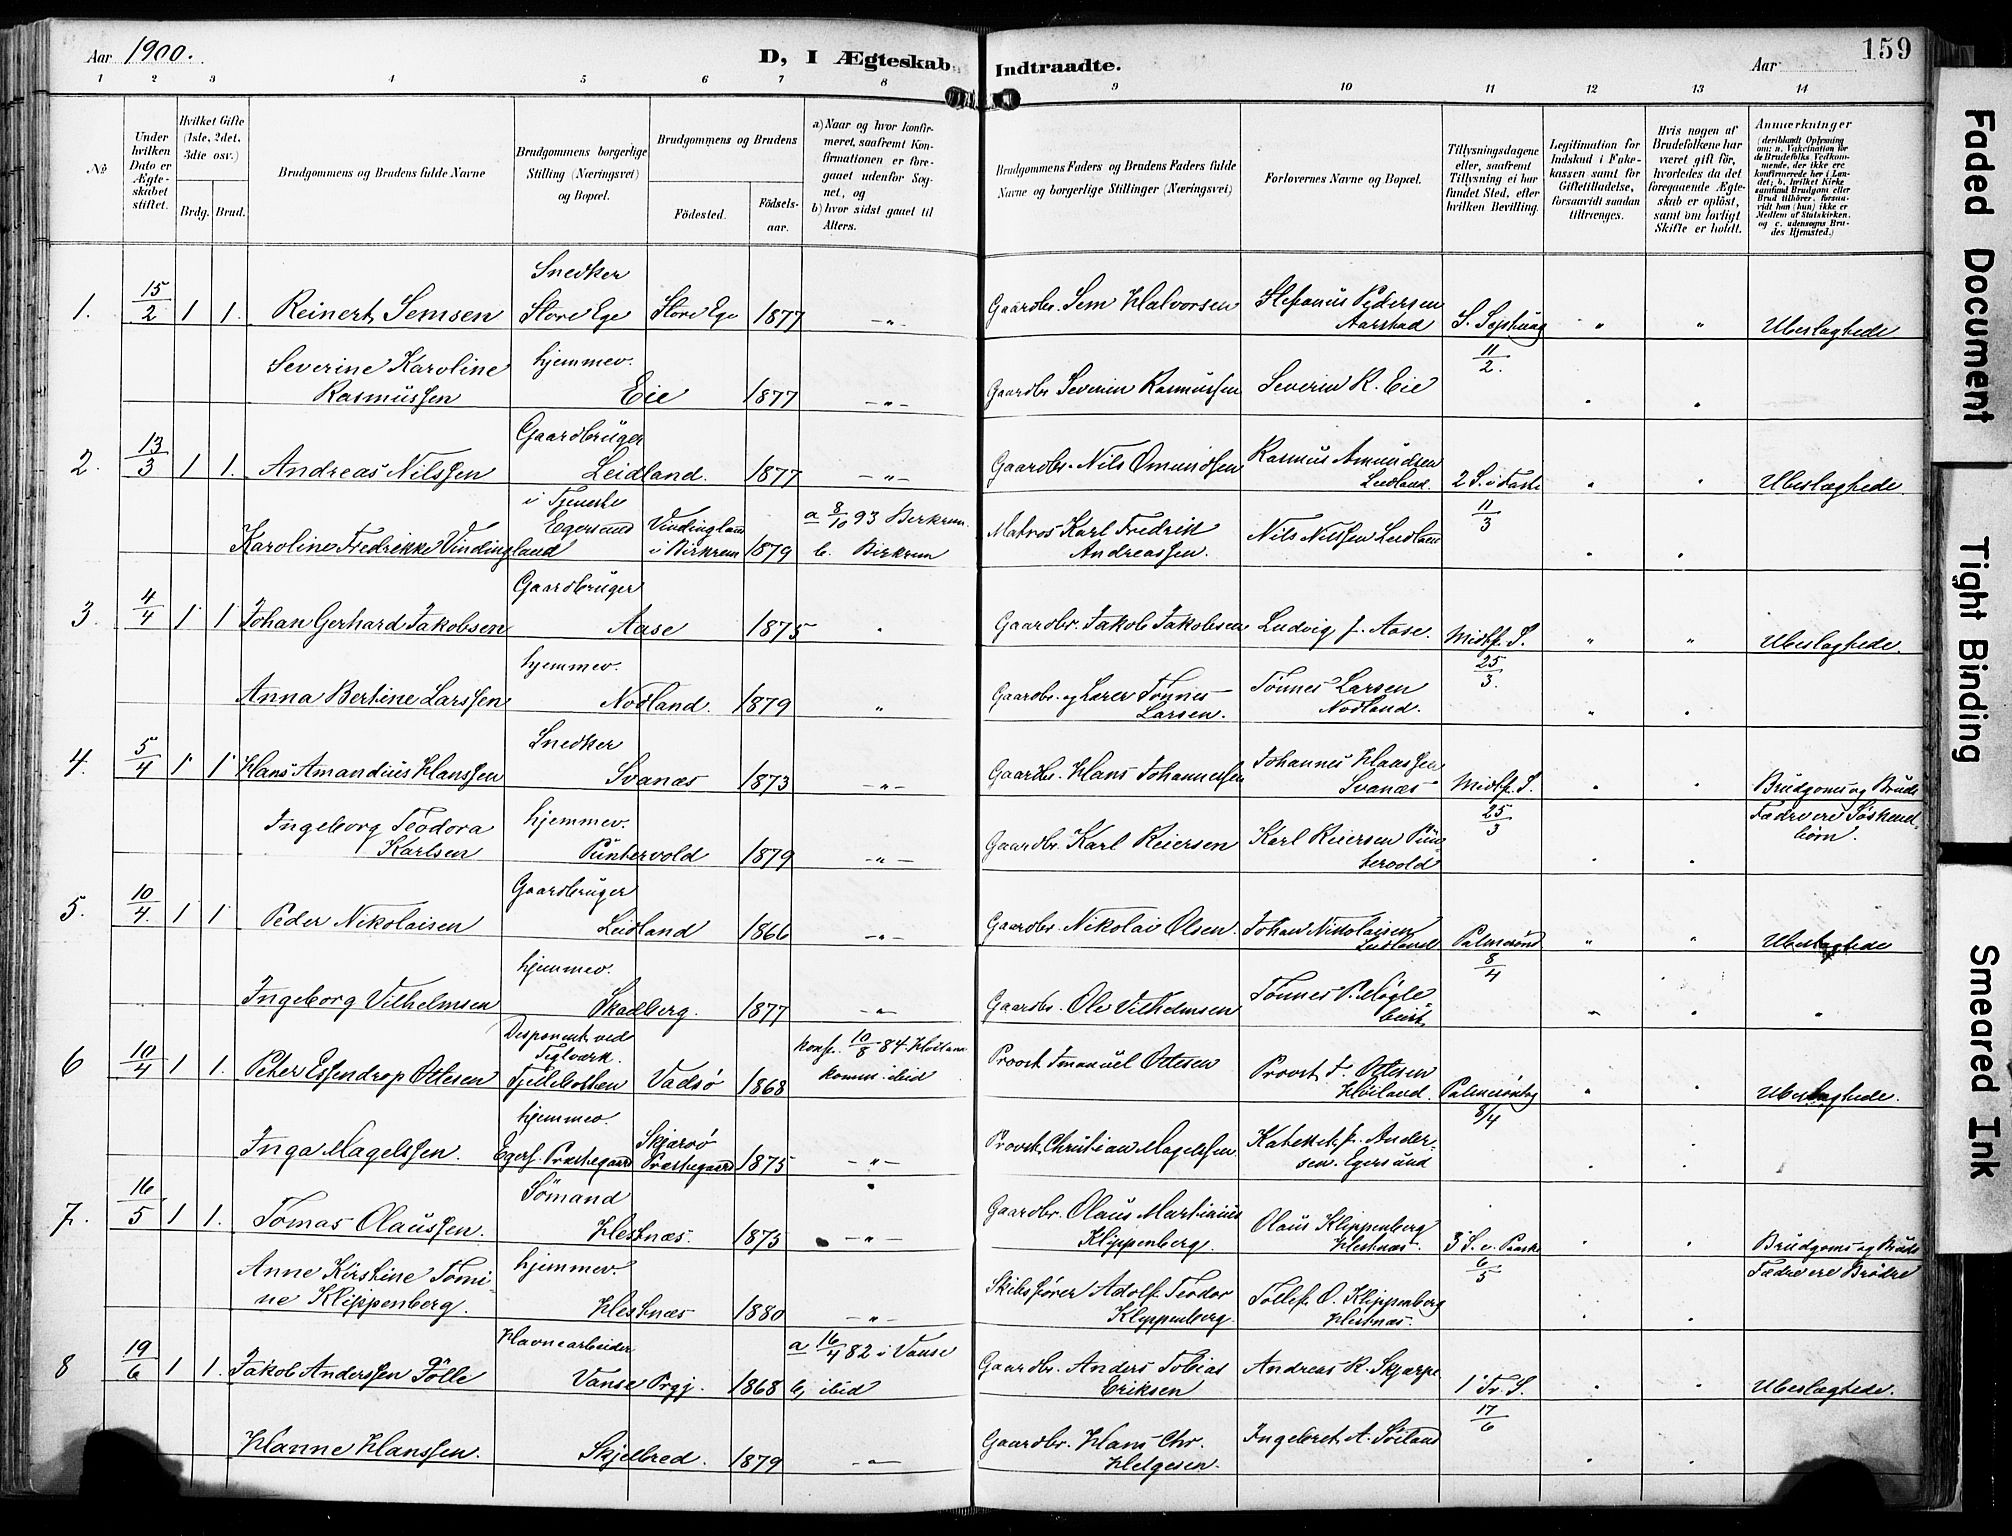 Aar 1900.
D, I Ægteskab Indtraadte.
Aar
159
1 2 3 4 5 6 7 8 9 10 11 12 13 14
No
Under hvilken Dato er Ægteskabet stiftet.
Hvilket Gifte (1ste, 2det, 3die osv.)
Brdg. Brud.
Brudgommens og Brudens fulde Navne
Brudgommens borgerlige Stilling (Næringsvei) og Bopæl.
Brudgommens og Brudens
Fødested.
Fødselsaar.
a) Naar og hvor konfirmeret, saafremt Konfirmationen er foregaaet udenfor Sognet, og
b) hvor sidst gaaet til Alters.
Brudgommens Faders og Brudens Faders fulde Navne og borgerlige Stillinger (Næringsvei)
Forlovernes Navne og Bopæl.
Tillysningsdagene eller, saafremt Tillysning ei har fundet Sted, efter hvilken Bevilling.
Legitimation for Indskud i Enkekassen samt for Giftetilladelse, forsaavidt saadan tiltrænges.
Hvis nogen af Brudefolkene har været gift før, hvorledes da det foregaaende Ægteskab er opløst, samt om lovligt Skifte er holdt.
Anmærkninger
(deriblandt Oplysning om: a. Vakcination for de Brudefolks Vedkommende, der ikke ere konfirmerede her i Landet; b. hvilket Kirkesamfund Brudgom eller Brud tilhører, forsaavidt han (hun) ikke er Medlem af Statskirken, og c. udensogns Brudes Hjemsted.)
1. 15/2 1 1. Reinert Semsen Snedker Store Ege Store Ege 1877 -"- Gaardbr. Sem Halvorsen Stefanus Pedersen Aarstad 11/2. " " Ubeslægtede
Severine Karoline Rasmussen hjemmev. Eie 1877 -"- Gaardbr. Severin Rasmussen Severin R. Eie " "
2. 13/3 1 1. Andreas Nilssen Gaardbruger Leidland. 1877 -"- Gaardbr. Nils Omundsen Rasmus Amundsen Leidland. 2 S. i Faste 11/3 " " Ubeslægtede
Karoline Fredrikke Vindingland i Tjeneste Egersund Vindingland i Birkrem 1879 a 8/10 93 Birkrem b. Birkrem Matros Karl Fredrik Andreassen. Nils Nilssen Leidland " "
3. 4/4 1 1 Johan Gerhard Jakobsen Gaardbruger Aase 1875 " Gaardbr. Jakob Jakobsen Ludvig J. Aase. Midtf. S. 25/3. " " Ubeslægtede.
Anna Bertine Larssen hjemmev. Nodland. 1879 " Gaardbr. og Lærer Tönnes Larsen. Tönnes Larsen Nodland. " "
4. 5/4 1 1 Hans Amandius Hanssen Snedker Svanæs 1873 -"- Gaardbr. Hans Johannessen Johannes Klaassen Svanæs Midtf. S. 25/3 " " Brudgoms og Bruds Fædre ere Söskendbörn.
Ingeborg Teodora Karlsen hjemmev. Puntervold 1879 -"- Gaardbr. Karl Reiersen Karl Reiersen Puntervold " "
5. 10/4. 1 1 Peder Nikolaisen Gaardbruger Leidland 1866 -"- Gaardbr. Nikolai Olsen. Johan Nikolaisen Leidland Palmesönd 8/4 " " Ubeslægtede
Ingeborg Vilhelmsen hjemmev. Skadberg. 1877 -"- Gaardbr. Ole Vilhelmsen Tönnes P. " " "
6 10/4 1 1. Peter Essendrop Ottesen Disponent ved Teglværk. Tjellebotten Vadsø 1868 konf. 10/8 84. Höiland komm. ibid Provst Imanuel Ottesen Provst I. Ottesen Höiland. Palmesöndag 8/4 " " Ubeslægtede.
Inga Magelssen. hjemmev. Egers. Præstegaard Skjærvö Præstegaard 1875 -"- Provst Christian Magelssen. Andersen. Egersund " "
7. 16/5 1 1. Tomas Olaussen. Sömand Hestnæs. 1873 -"- Gaardbr. Olaus Martinius Klippenberg. Olaus Klippenberg Hestnæs. 3 S. e. Paaske 6/5 " " Brudgoms og Bruds Fædre ere Brödre
Anne Kirstine Tomine Klippenberg. hjemmev. Hestnæs 1880 -"- Skibsförer Adolf Teodor Klippenberg. Tollef O. Klippenberg Hestnæs. " "
8 19/6 1 1. Jakob Anderssen Jölle Havnearbeider Vanse Prgj. 1868 a 16/4 82 i Vanse b, ibid Gaardbr. Anders Tobias Eriksen Andreas R. Skjærpe 1 Tr. S. 17/6 " " Ubeslægtede.
Hanne Hanssen. Skjelbred. 1879 -"- Gaardbr. Hans Chr. Helgesen. Ingebret A. " "
Faded Document
Tight Binding
Smeared Ink